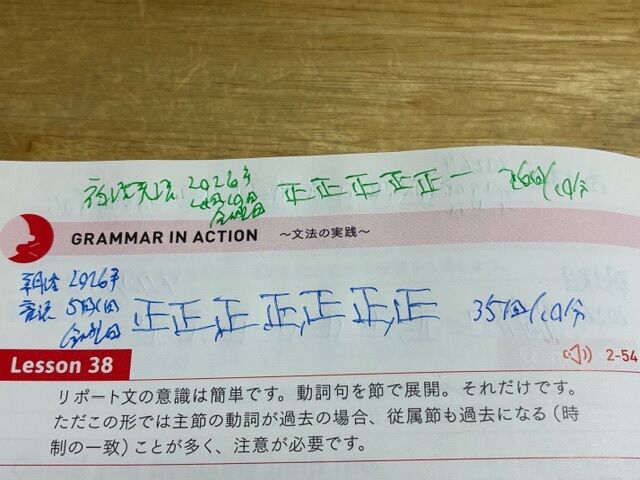 2026年 正正正正正一 26回/10分
GRAMMAR IN ACTION ～文法の実践～
2026年
音読 正正正正正正正 35回/10分
Lesson 38
2-54
リポート文の意識は簡単です。動詞句を節で展開。それだけです。
ただこの形では主節の動詞が過去の場合、従属節も過去になる（時
制の一致）ことが多く、注意が必要です。